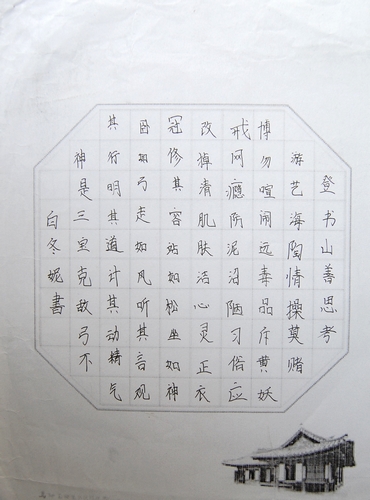 登书山善思考
游艺海陶情操莫赌
博勿喧闹远毒品斥黄妖
戒网瘾防泥沼陋习俗应
改掉清肌肤洁心灵正衣
冠修其容站如松坐如神
卧如弓走如风听其言观
其行明其道计其动精气
神是三宝克敌弓不
白冬妮書